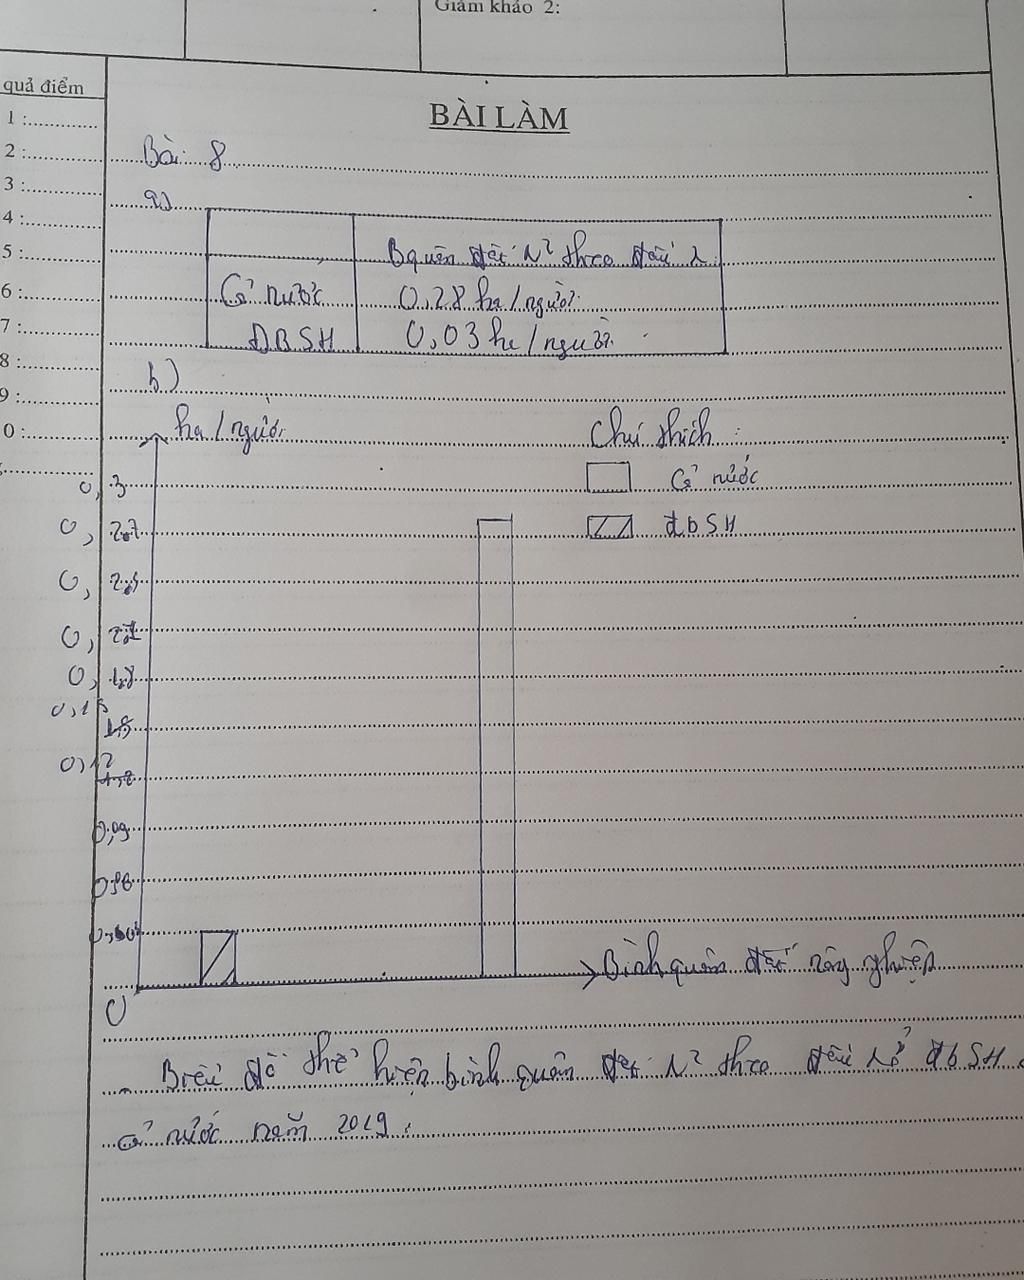 Giám khảo 2:
quả điểm
BÀI LÀM
1 :
2 :
3 :
4 :
5 :
6 :
7 :
8 :
9 :
0 :
Bài 8
a)
Bquân đất N² theo đầu
Cả nước 0,28 ha/người
ĐBSH 0,03 ha/người
b)
ha/người
Chú thích :
Cả nước
đbSH
0,3
0,27
0,
0,
0,
0,15
0,12
0,09
0
Bình quân đất nông nghiệp
Biểu đồ thể hiện bình quân đất N² theo đầu đbSH
cả nước năm 2019.